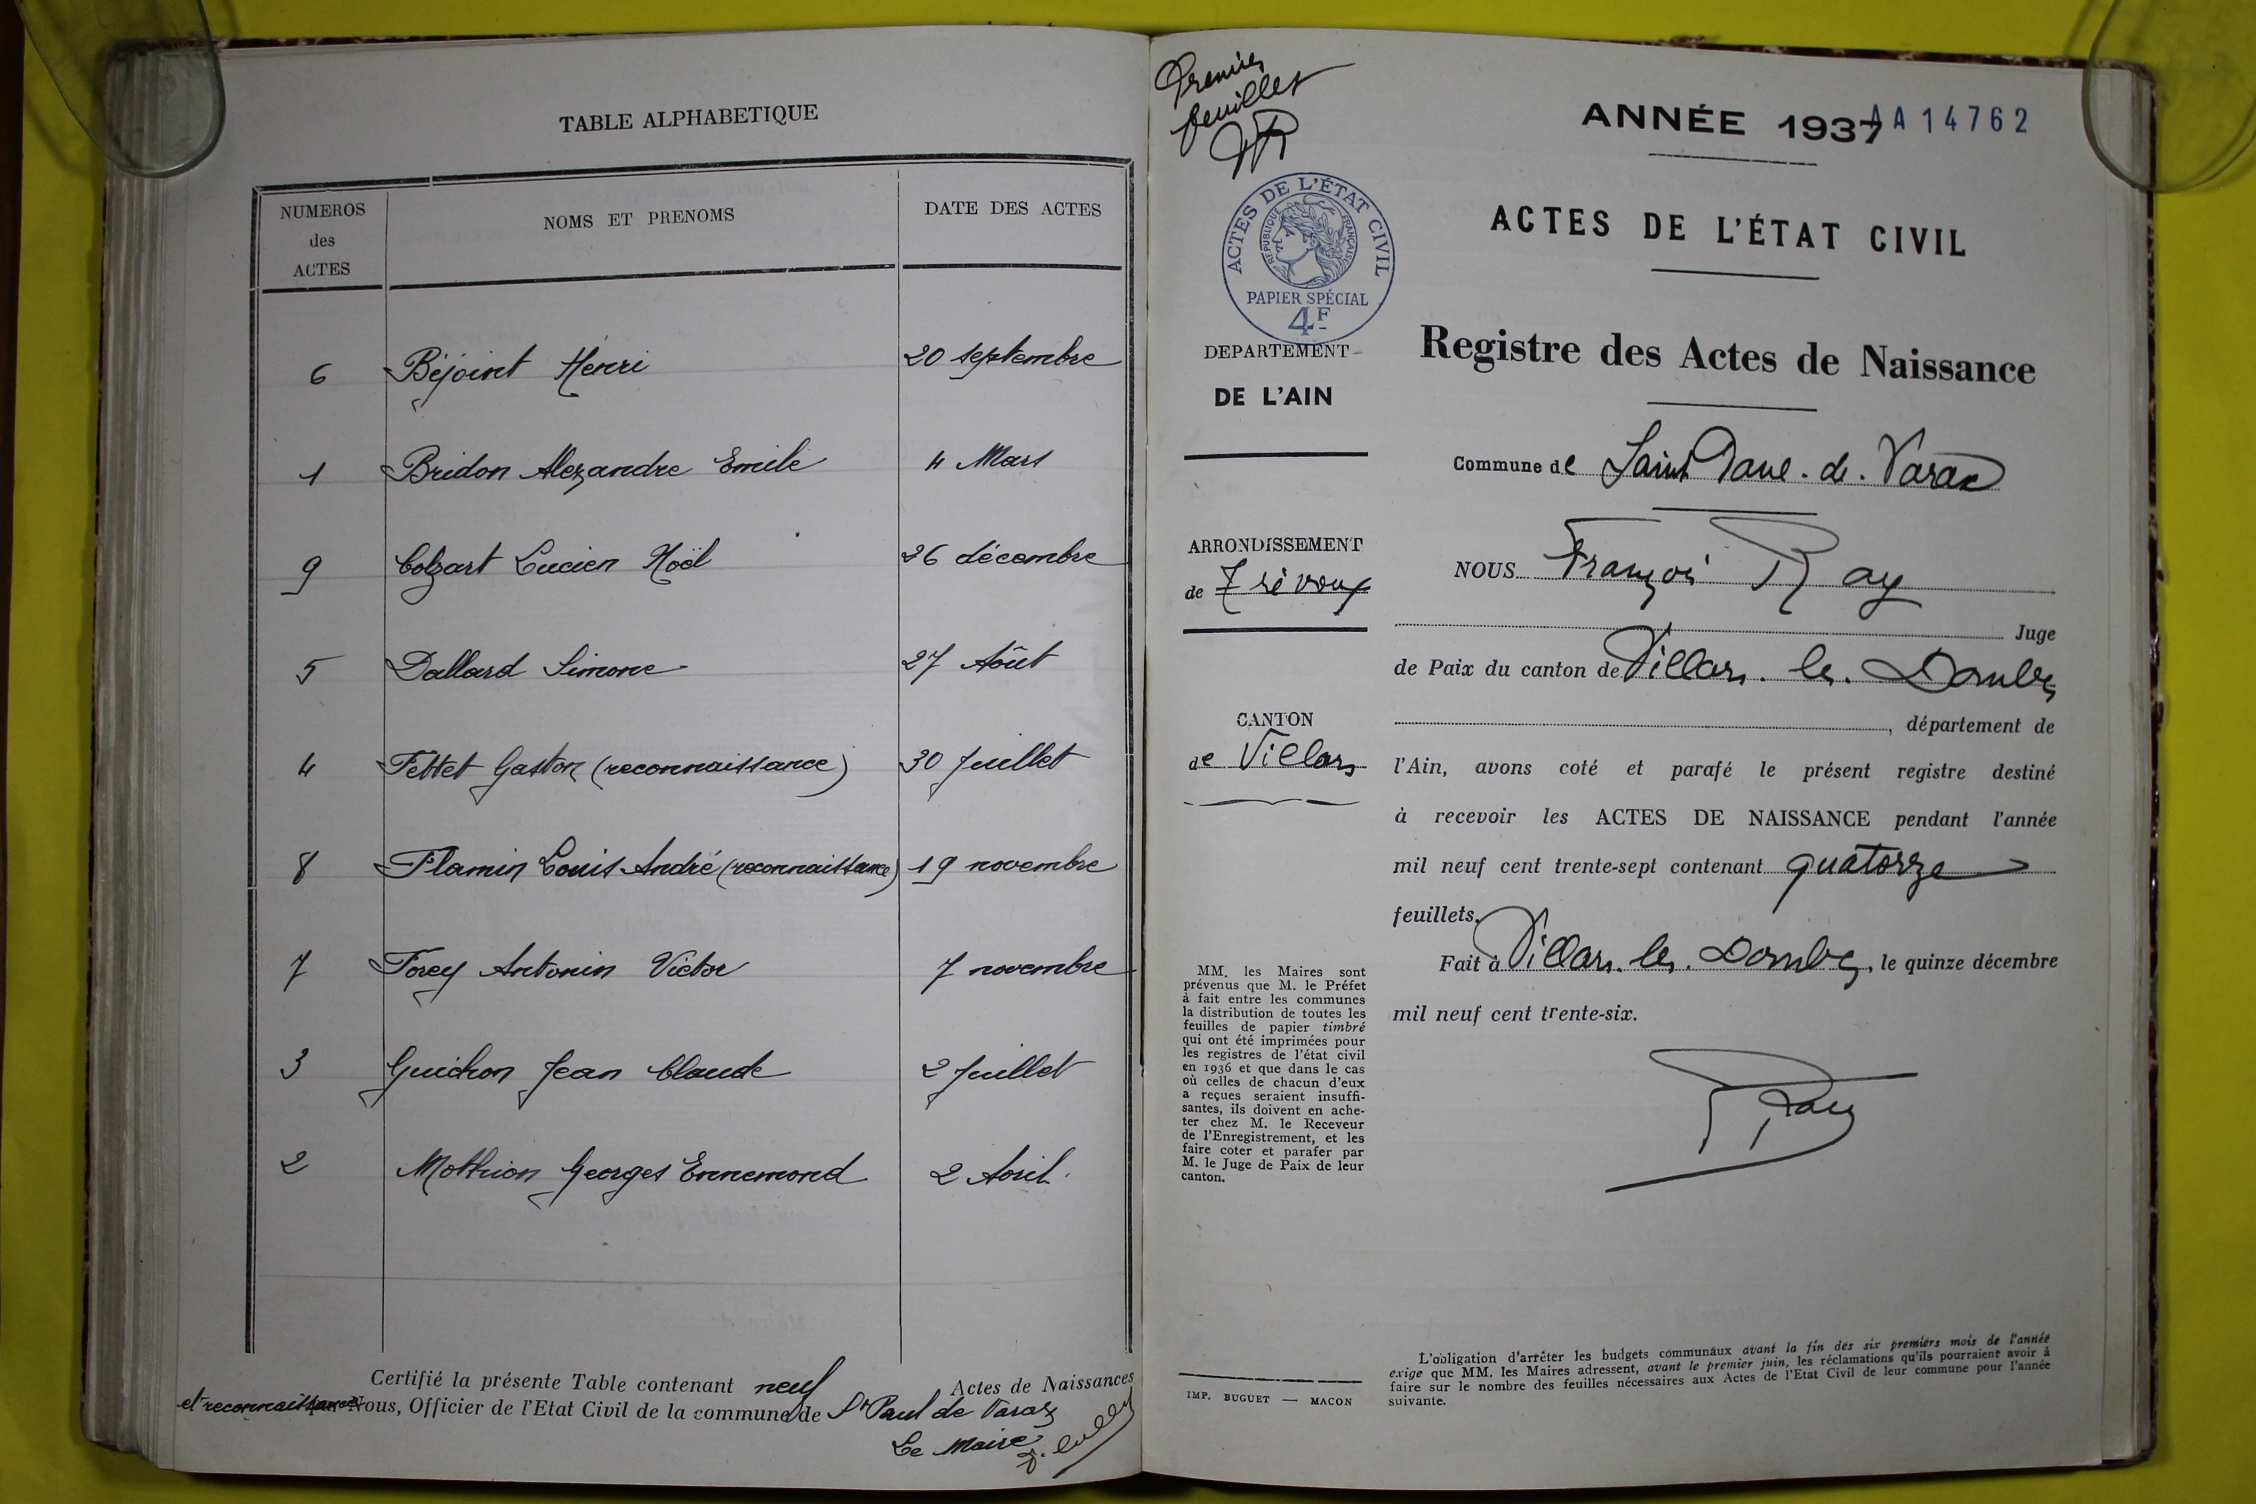 TABLE ALPHABETIQUE
NUMEROS
des
ACTES
NOMS ET PRENOMS
DATE DES ACTES
6 Béjoint Hénri 20 septembre
1 Bridon Alexandre Emile 4 Mars
9 Colzart Lucien Noël 26 décembre
5 Dallard Simone 27 Août
4 Fettet Gaston (reconnaissance) 30 Juillet
8 Flamin Louis André (reconnaissance) 19 novembre
7 Forey Antonin Victor 7 novembre
3 Guichon Jean Claude 2 Juillet
2 Motthion Georges Ennemond 2 Avril.
Certifié la présente Table contenant neuf Actes de Naissances
et reconnaissances par Nous, Officier de l'Etat Civil de la commune de St Paul de Varax
Le Maire
Premier
feuillet
ANNÉE 1937
AA14762
ACTES DE L'ÉTAT CIVIL
RÉPUBLIQUE FRANÇAISE
PAPIER SPÉCIAL
4F
ACTES DE L'ÉTAT CIVIL
Registre des Actes de Naissance
DEPARTEMENT
DE L'AIN
ARRONDISSEMENT
de Trévoux
CANTON
de Villars
MM. les Maires sont
prévenus que M. le Préfet
à fait entre les communes
la distribution de toutes les
feuilles de papier timbré
qui ont été imprimées pour
les registres de l'état civil
en 1936 et que dans le cas
où celles de chacun d'eux
a reçues seraient insuffi-
santes, ils doivent en ache-
ter chez M. le Receveur
de l'Enregistrement, et les
faire coter et parafer par
M. le Juge de Paix de leur
canton.
IMP. BUGUET — MACON
Commune de Saint Paul. de. Varax
NOUS François Ray
Juge
de Paix du canton de Villars. les. Dombes
, département de
l'Ain, avons coté et parafé le présent registre destiné
à recevoir les ACTES DE NAISSANCE pendant l'année
mil neuf cent trente-sept contenant quatorze
feuillets.
Fait à Villars. les. Dombes, le quinze décembre
mil neuf cent trente-six.
Ray
L'obligation d'arrêter les budgets communaux avant la fin des six premiers mois de l'année
exige que MM. les Maires adressent, avant le premier juin, les réclamations qu'ils pourraient avoir à
faire sur le nombre des feuilles nécessaires aux Actes de l'Etat Civil de leur commune pour l'année
suivante.